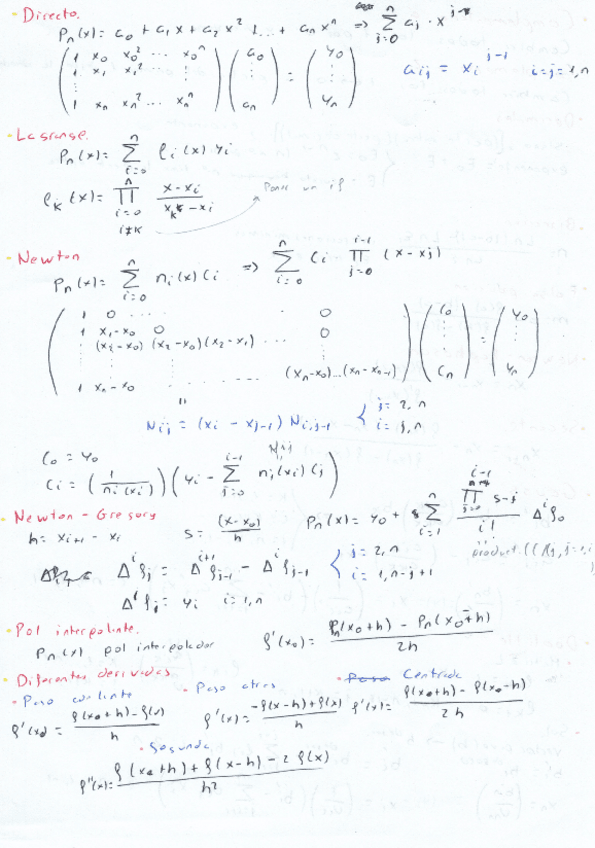 • Directo.
Pn(x) = a0 + a1 x + a2 x² + ... + an x^n => Σ_{j=0}^{n} aj · x^{j-1}
( 1 x0 x0² ... x0^n ) ( a0 ) ( y0 )
( 1 x1 x1² ... x1^n ) ( ⋮ ) = ( ⋮ ) aij = xi^{j-1} i=j=1,n
( 1 xn xn² ... xn^n ) ( an ) ( yn )
• Lagrange.
Pn(x) = Σ_{i=0}^{n} ℓi(x) yi
ℓk(x) = Π_{i=0, i≠k}^{n} (x-xi)/(xk-xi) Poner un if
• Newton
Pn(x) = Σ_{i=0}^{n} ni(x) Ci => Σ_{i=0}^{n} Ci Π_{j=0}^{i-1} (x-xj)
( 1 0 ... 0 ) ( C0 ) ( y0 )
( 1 x1-x0 0 ... 0 )
( ⋮ (x2-x0) (x2-x0)(x2-x1) ... ) ( ⋮ ) = ( ⋮ )
( 1 xn-x0 ... (xn-x0)...(xn-xn-1) ) ( Cn ) ( yn )
Nij = (xi - xj-1) Ni,j-1 { j=2,n
i=j,n
C0 = y0
Ci = (1/ni(xi)) (yi - Σ_{j=0}^{i-1} nj(xi) Cj) Ni,j
• Newton - Gregory
h = xi+1 - xi s = (x-x0)/h Pn(x) = y0 + Σ_{i=1}^{n} (Π_{j=0}^{i-1} s-j)/i! Δ^i f0
Δ^i fj = Δ^{i+1} fj-1 - Δ^i fj-1 { j=2,n
i=1,n-j+1 product ((
Δ^i fj = yi i=1,n
• Pol interpolante.
Pn(x) pol interpolador f'(x0) = (Pn(x0+h) - Pn(x0-h))/2h
• Diferentes derivadas
• Paso adelante • Paso atras • Centrada
f'(x0) = (f(x0+h) - f(x))/h f'(x) = (-f(x-h)+f(x))/h f'(x) = (f(x0+h) - f(x0-h))/2h
• Segunda
f''(x) = (f(x0+h) + f(x-h) - 2 f(x))/h²